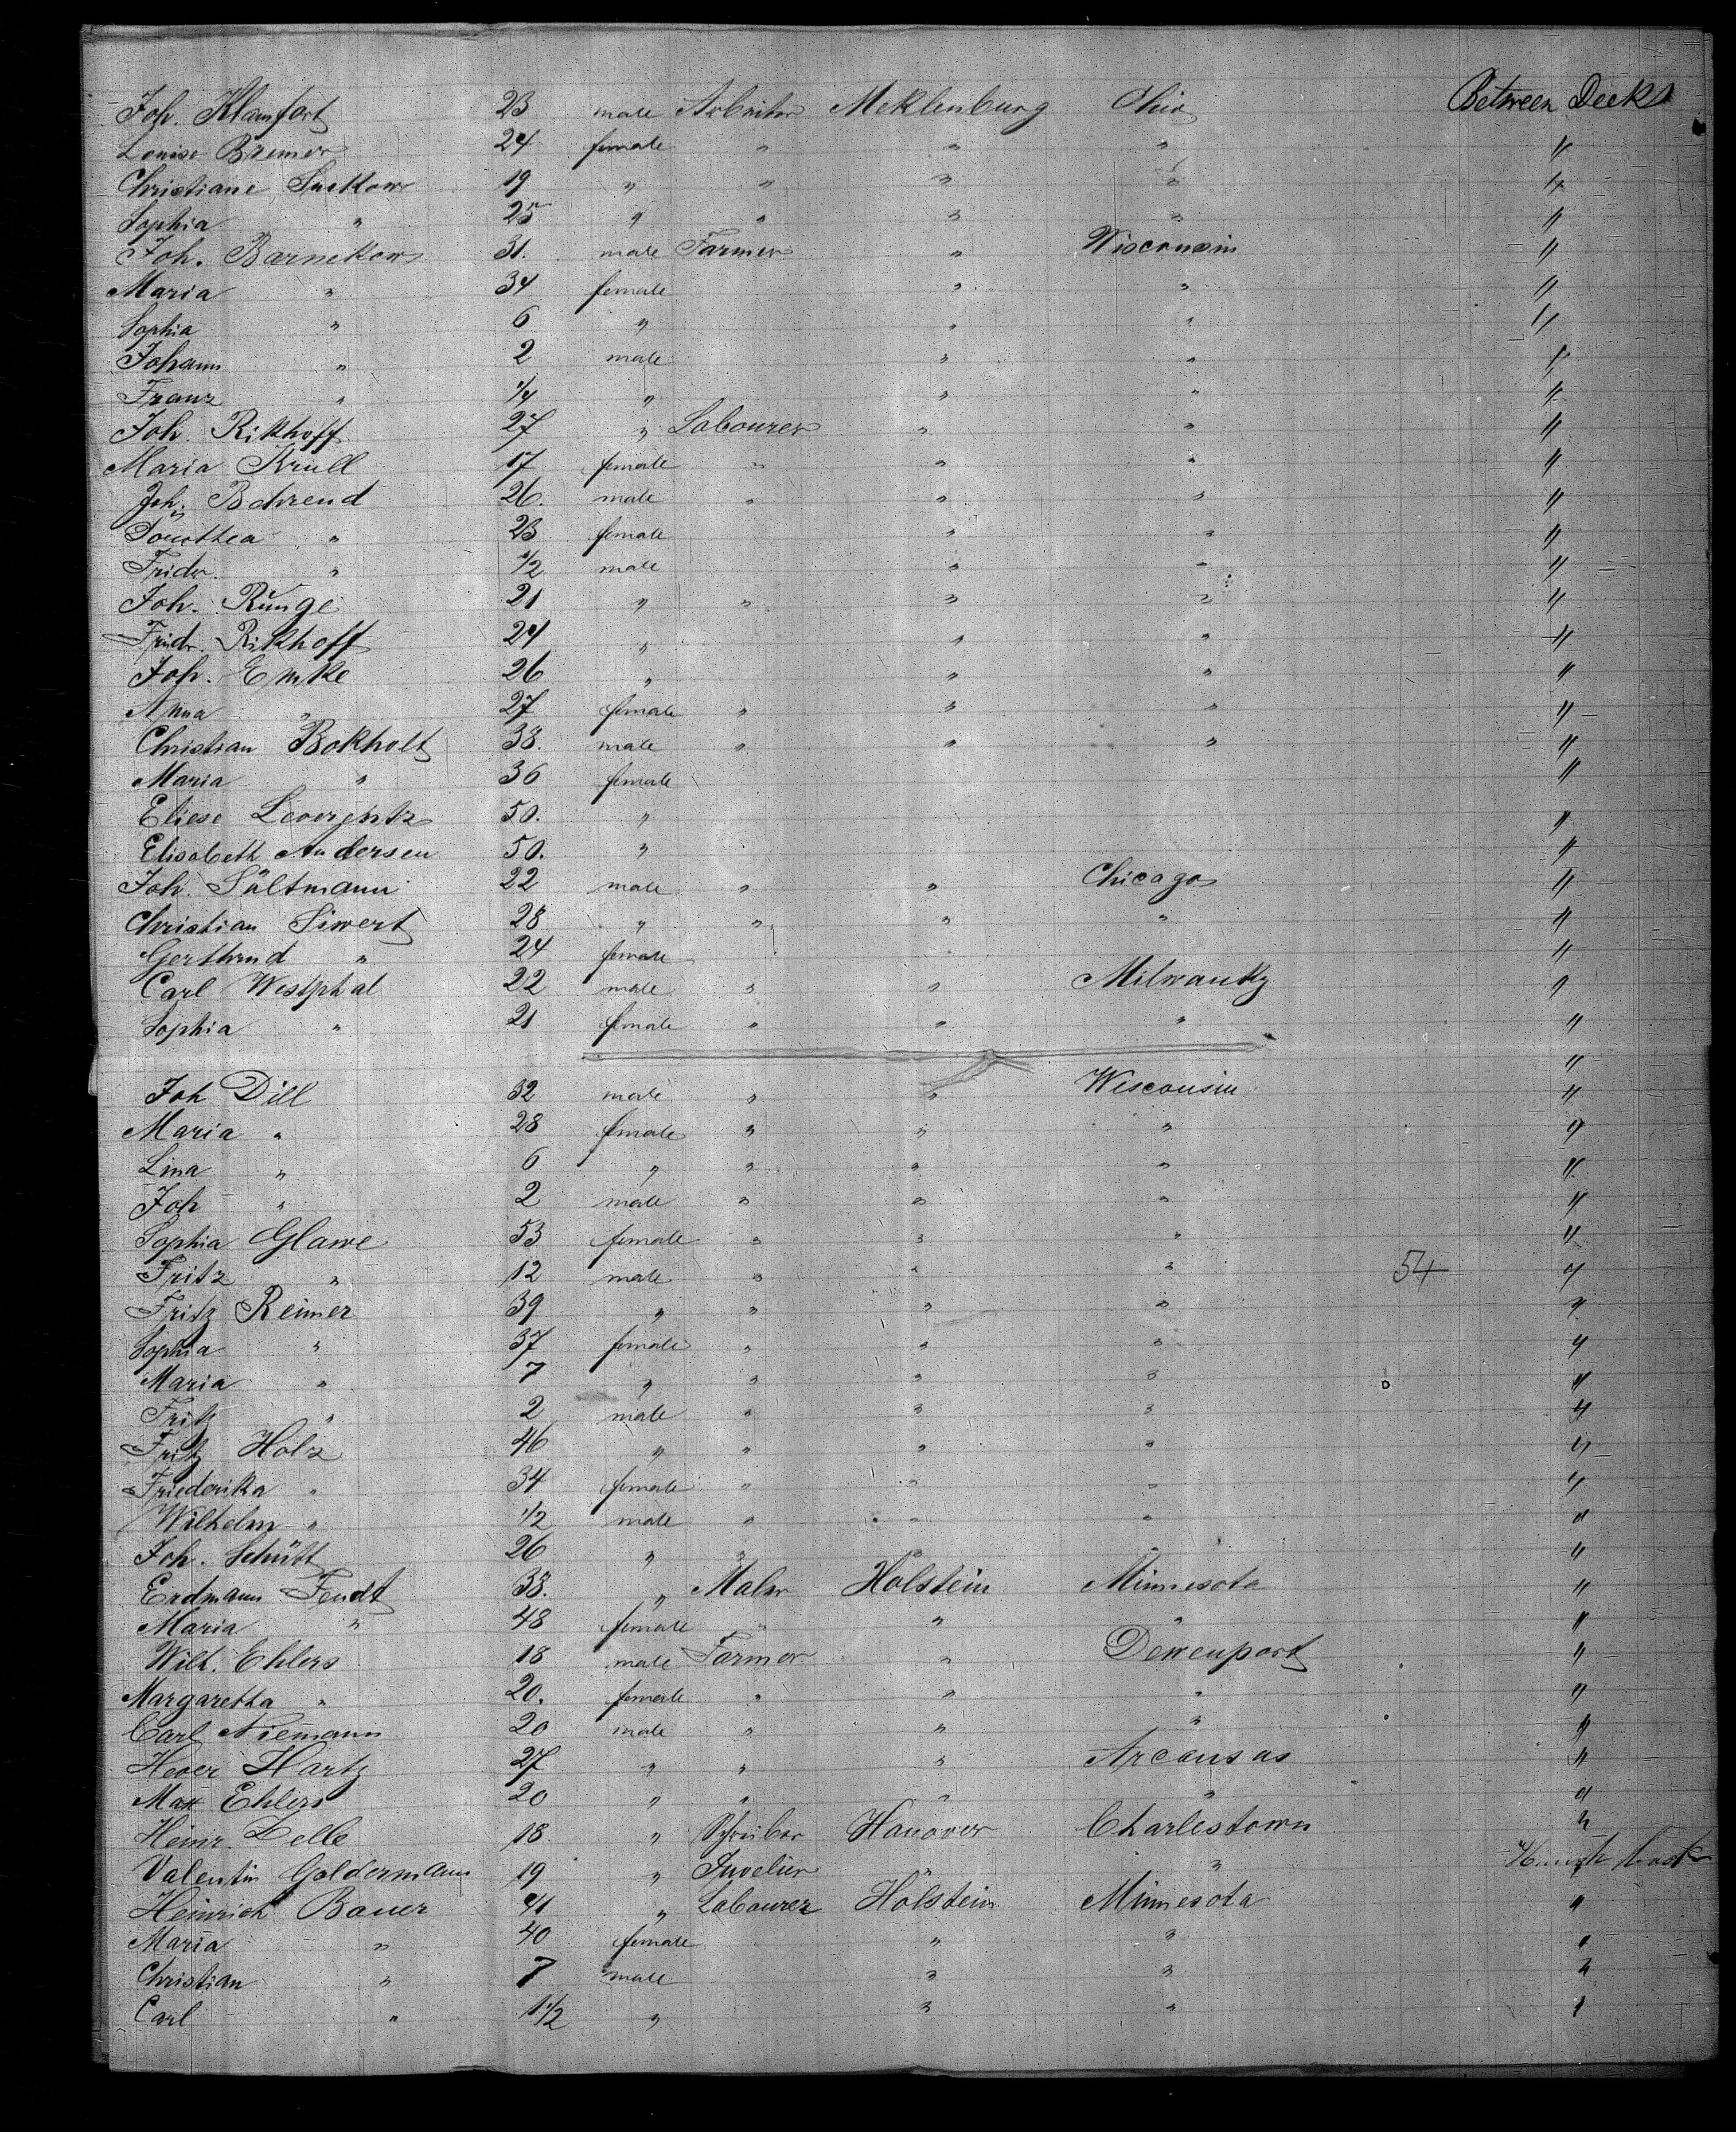 Joh. Klamfort 23 male Arbeiter Meklenburg Ohio Between Decks
Louise Bremer 24 female " " " "
Christiane Suckow 19 " " " " "
Sophia " 25 " " " " "
Joh. Barnekow 31. male Farmer " Wisconsin "
Maria " 34 female " " "
Sophia " 6 " " " "
Johann " 2 male " " "
Franz " 1/4 " " " "
Joh. Rikhoff 27 " Labourer " " "
Maria Krull 17 female " " " "
Joh. Behrend 26. male " " " "
Dorothea " 23 female " " "
Fridr. " 1/2 male " " "
Joh. Runge 21 " " " " "
Fridr. Rikhoff 24 " " " "
Joh. Emke 26 " " " "
Anna " 27 female " " " "
Christian Bokholt 38. male " " " "
Maria " 36 female "
Eliese Leverentz 50. " "
Elisabeth Andersen 50. " "
Joh. Sültmann 22 male " " Chicago "
Christian Siwert 28 " " " " "
Gerthrud " 24 female "
Carl Westphal 22 male " " Milwauky "
Sophia " 21 female " " " "
"
Joh Dill 32 male " " Wisconsin "
Maria " 28 female " " " "
Lina " 6 " " " " "
Joh " 2 male " " " "
Sophia Glawe 53 female " " " "
Fritz " 12 male " " " 54 "
Fritz Reimer 39 " " " " "
Sophia " 37 female " " " "
Maria " 7 " " " " "
Fritz " 2 male " " " "
Fritz Holz 46 " " " " "
Friederika " 34 female " " " "
Wilhelm " 1/2 male " " " "
Joh. Schütt 26 " " " "
Erdmann Fendt 38. " Maler Holstein Minnesota "
Maria " 48 female " " " "
Wilh. Ehlers 18 male Farmer " Dewenport "
Margaretha " 20. female " " " "
Carl Niemann 20 male " " " "
Hartz 27 " " " Arcansas "
Max Ehlers 20 " " " " "
Heinr. Zelle 18 " Schreiber Hanover Charlestown "
Valentin Goldermann 19 " Juvelier " "
Heinrich Bauer 41 " Labourer Holstein Minnesota "
Maria " 40 female " " "
Christian " 7 male " " "
Carl " 1 1/2 " " " "